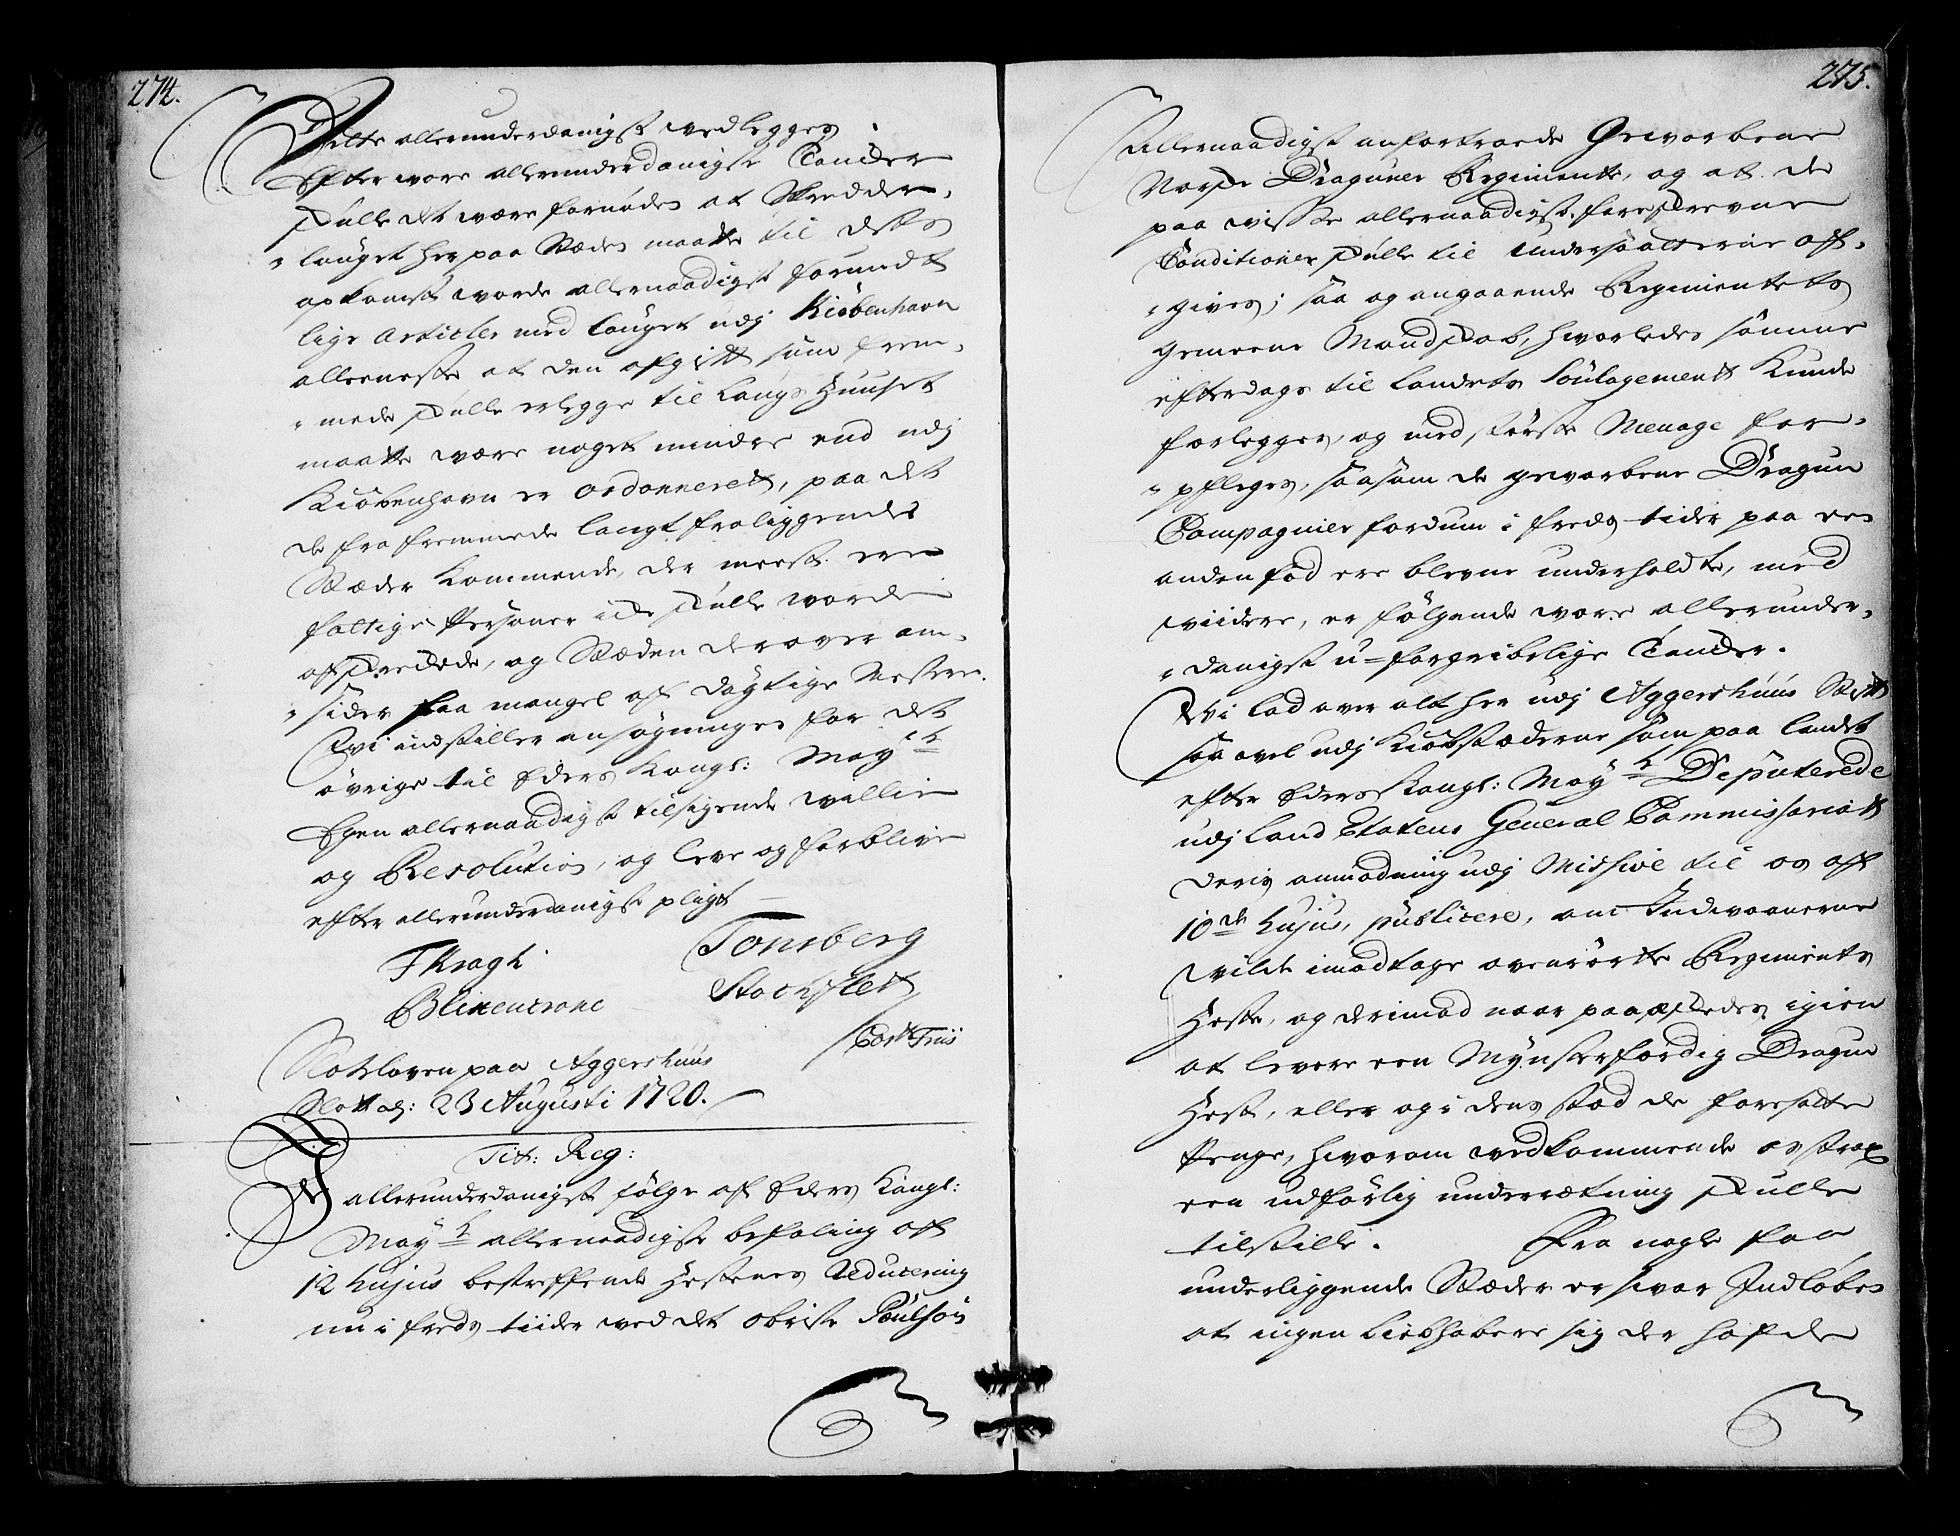 274.
Dette allerunderdanigst vedlegges.
Efter vore allerunderdanigste Tancker
skulle det være fornøden at Skredder-
lauget her paa Stædet maatte til dets
opkomst worde allernaadigst forundt
lige Articler med lauget udj Kiøbenhavn
alleeneste at den afgift som frem-
mede skulle erlegge til Laugs Huuset
maatte være noget mindre end udj
Kiøbenhavn er ordonneret, paa det
de fra fremmede langt fraliggende
Stæder kommende, der meest ere
fattige Persohner icke skulle worde
afskreckede, og Stæden derover om-
sider faa mangel af dygtige Mestere.
Wi indstiller ansøgningen for det
øvrige til Eders Kongl: Mayts
Egen allernaadigst tilsigende willie
og Resolution, og leve og forblive
efter allerunderdanigst pligt
FKragh Tonsberg
Blixencrone Stochfleth
Cort Friis
Slotsloven paa Aggershuus
Slott d: 23 Augusti 1720.
Tit: Reg:
J allerunderdanigst følge af Eders Kongl:
Mayts allernaadigste befaling af
12 hujus betreffende Hestenes Reducering
nu i freds tiider ved det Obriste Poulson
275.
Allernaadigst anfortroede Gevorbene
Norske Draguner Regimente, og at de
paa wisse allernaadigst foreskrevne
Conditioner skulle til undersaatterne af-
gives; saa og angaaende Regimentets
gemeene Mandskab, hvorledes samme
efterdags til landets Soulagement kunde
forlegges, og med største Menage for-
pfleges, saasom de gevorbene Dragun
Compagnier fordum i freds tider paa een
anden fod ere blevne underholdte, med
viidere, er følgende wore allerunder-
danigst u-forgribelige Tancker.
Wi lod over alt her udj Aggershuus Stift
saavel udj Kiøbstæderne som paa landet
efter Eders Kongl: Mayts Deputerede
udj Land Etatens General Commissariatt
deris anmodning udj Missive til os af
10de hujus, publicere, om Indvaanerne
vilde imodtage ovenrørte Regiments
Heste, og derimod naar paaæskedes igien
at levere een Mynsterfærdig Dragun
Hest, eller og i dens stæd de foresatte
Penge, hvorom vedkommende os strax
een udførlig underretning skulle
tilstille. Fra nogle faa
underliggende Stæder er svar Indløben
at ingen Liebhabere sig der hafde